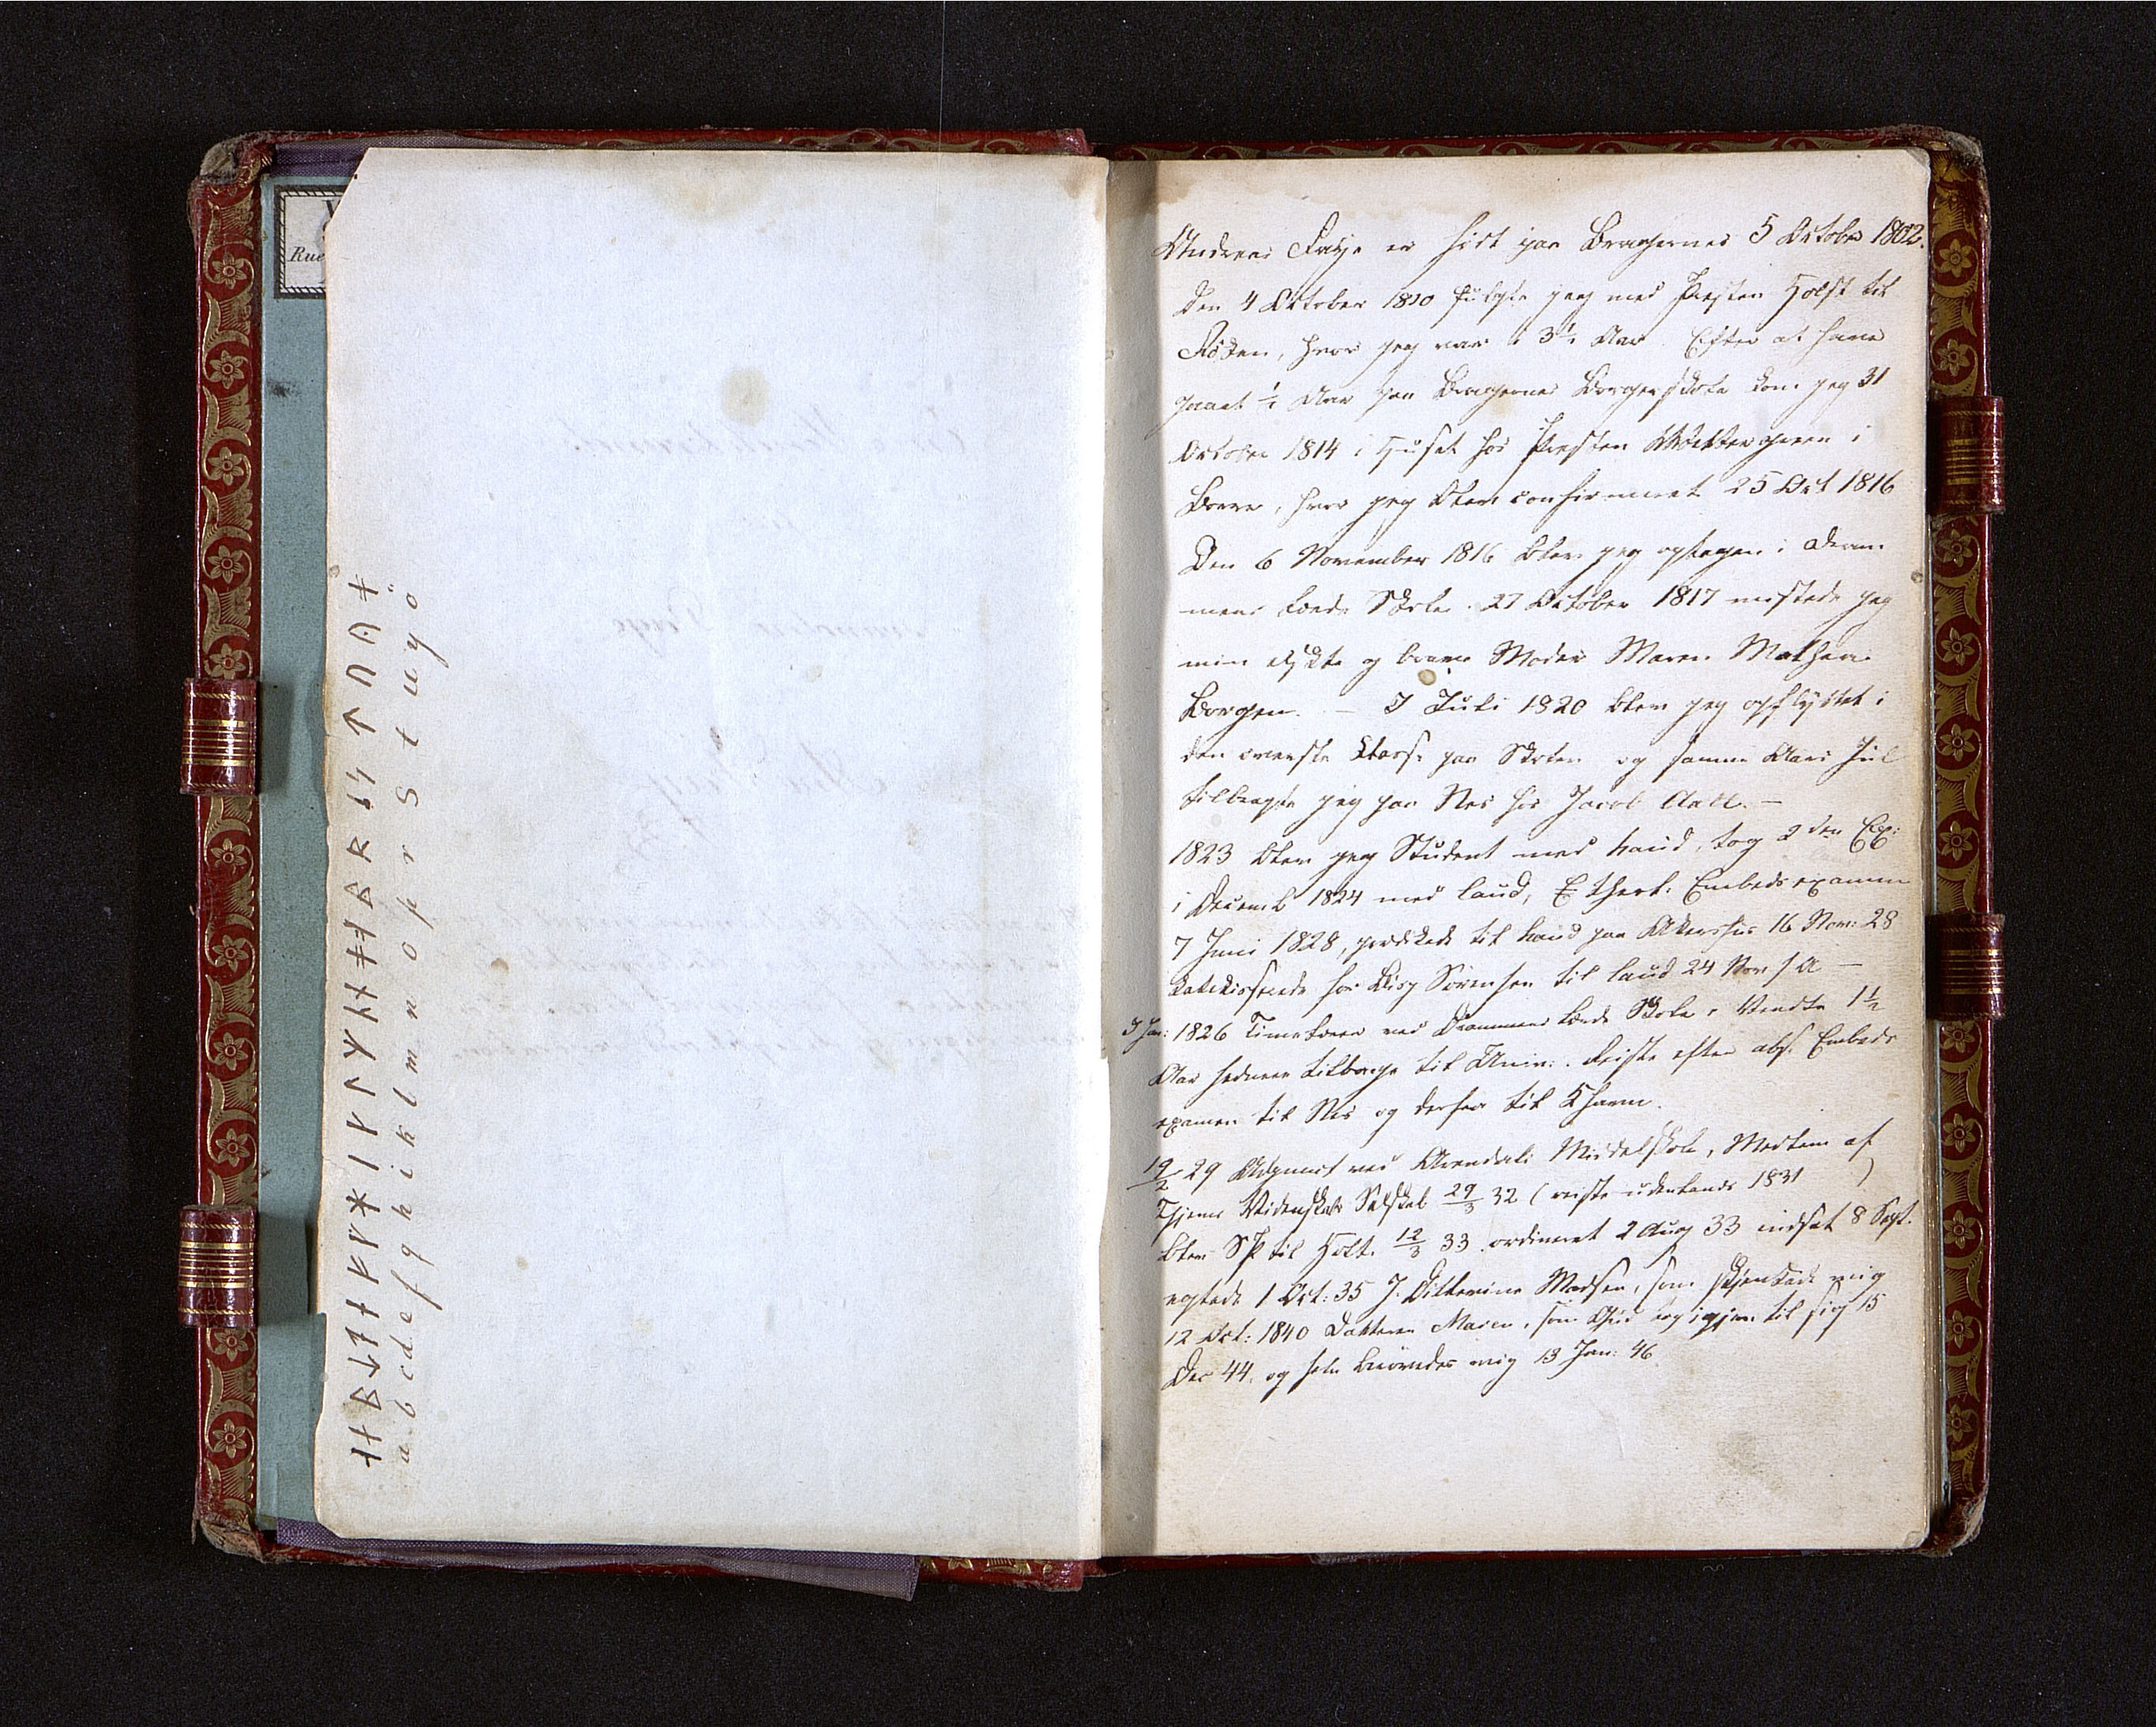 Rue
ᛆ ᛒ ᛍ ᛑ ᛂ ᚠ ᚵ ᚼ ᛁ ᚴ ᛚ ᛘ ᚿ ᚮ ᛔ ᚱ ᛋ ᛏ ᚢ
a b c d e f g h i k l m n o p r S t u y ö
Andreas Faye er født paa Bragernes 5 October 1802.
Den 4 October 1810 fulgte jeg med Presten Holst til
Röken, hvor jeg var i 3½ Aar. Efter at have
gaaet ½ Aar paa Bragernes Borgerskole kom jeg 31
October 1814 i Huset hos Presten Wettergreen i
Borre, hvor jeg blev confirmeret 25 Oct 1816
Den 6 November 1816 blev jeg optagen i Dram
mens lærde Skole. 27 October 1817 mistede jeg
min elskte og brave Moder Maren Mathea
Borgen. — I Juli 1820 blev jeg opflyttet i
den överste Classe paa Skolen og samme Aars Juul
tilbragte jeg paa Nes hos Jacob Aall. —
1823 blev jeg Student med haud, tog 2den Ex:
i Decemb 1824 med laud, Theol: Embedsexamen
7 Juni 1828, prædikede til haud paa Akershus 16 Nov: 28
Katekiserede for Bisp Sörensen til laud 24 Nov s A —
3 Jan: 1826 Timelærer ved Drammens lærde Skole, vendte 1½
Aar sednere tilbage til Univ:. Reiste efter abs. Embeds
examen til Nes og derfra til Khavn.
19/2 29 Adjunct ved Arendals Middelskole, Medlem af
Thjems Videnskabs Selskab 29/3 32 (reiste udenlands 1831 )
blev SP til Holt. 12/3 33 ordineret 2 Aug 33 indsat 8 Sept.
egtede 1 Oct: 35 J. Ditlevine Madsen, som skjenkede mig
12 Oct: 1840 Datteren Maren, som Gud tog igjen til sig 15
Dec 44, og selv berövedes mig 13 Jan: 46